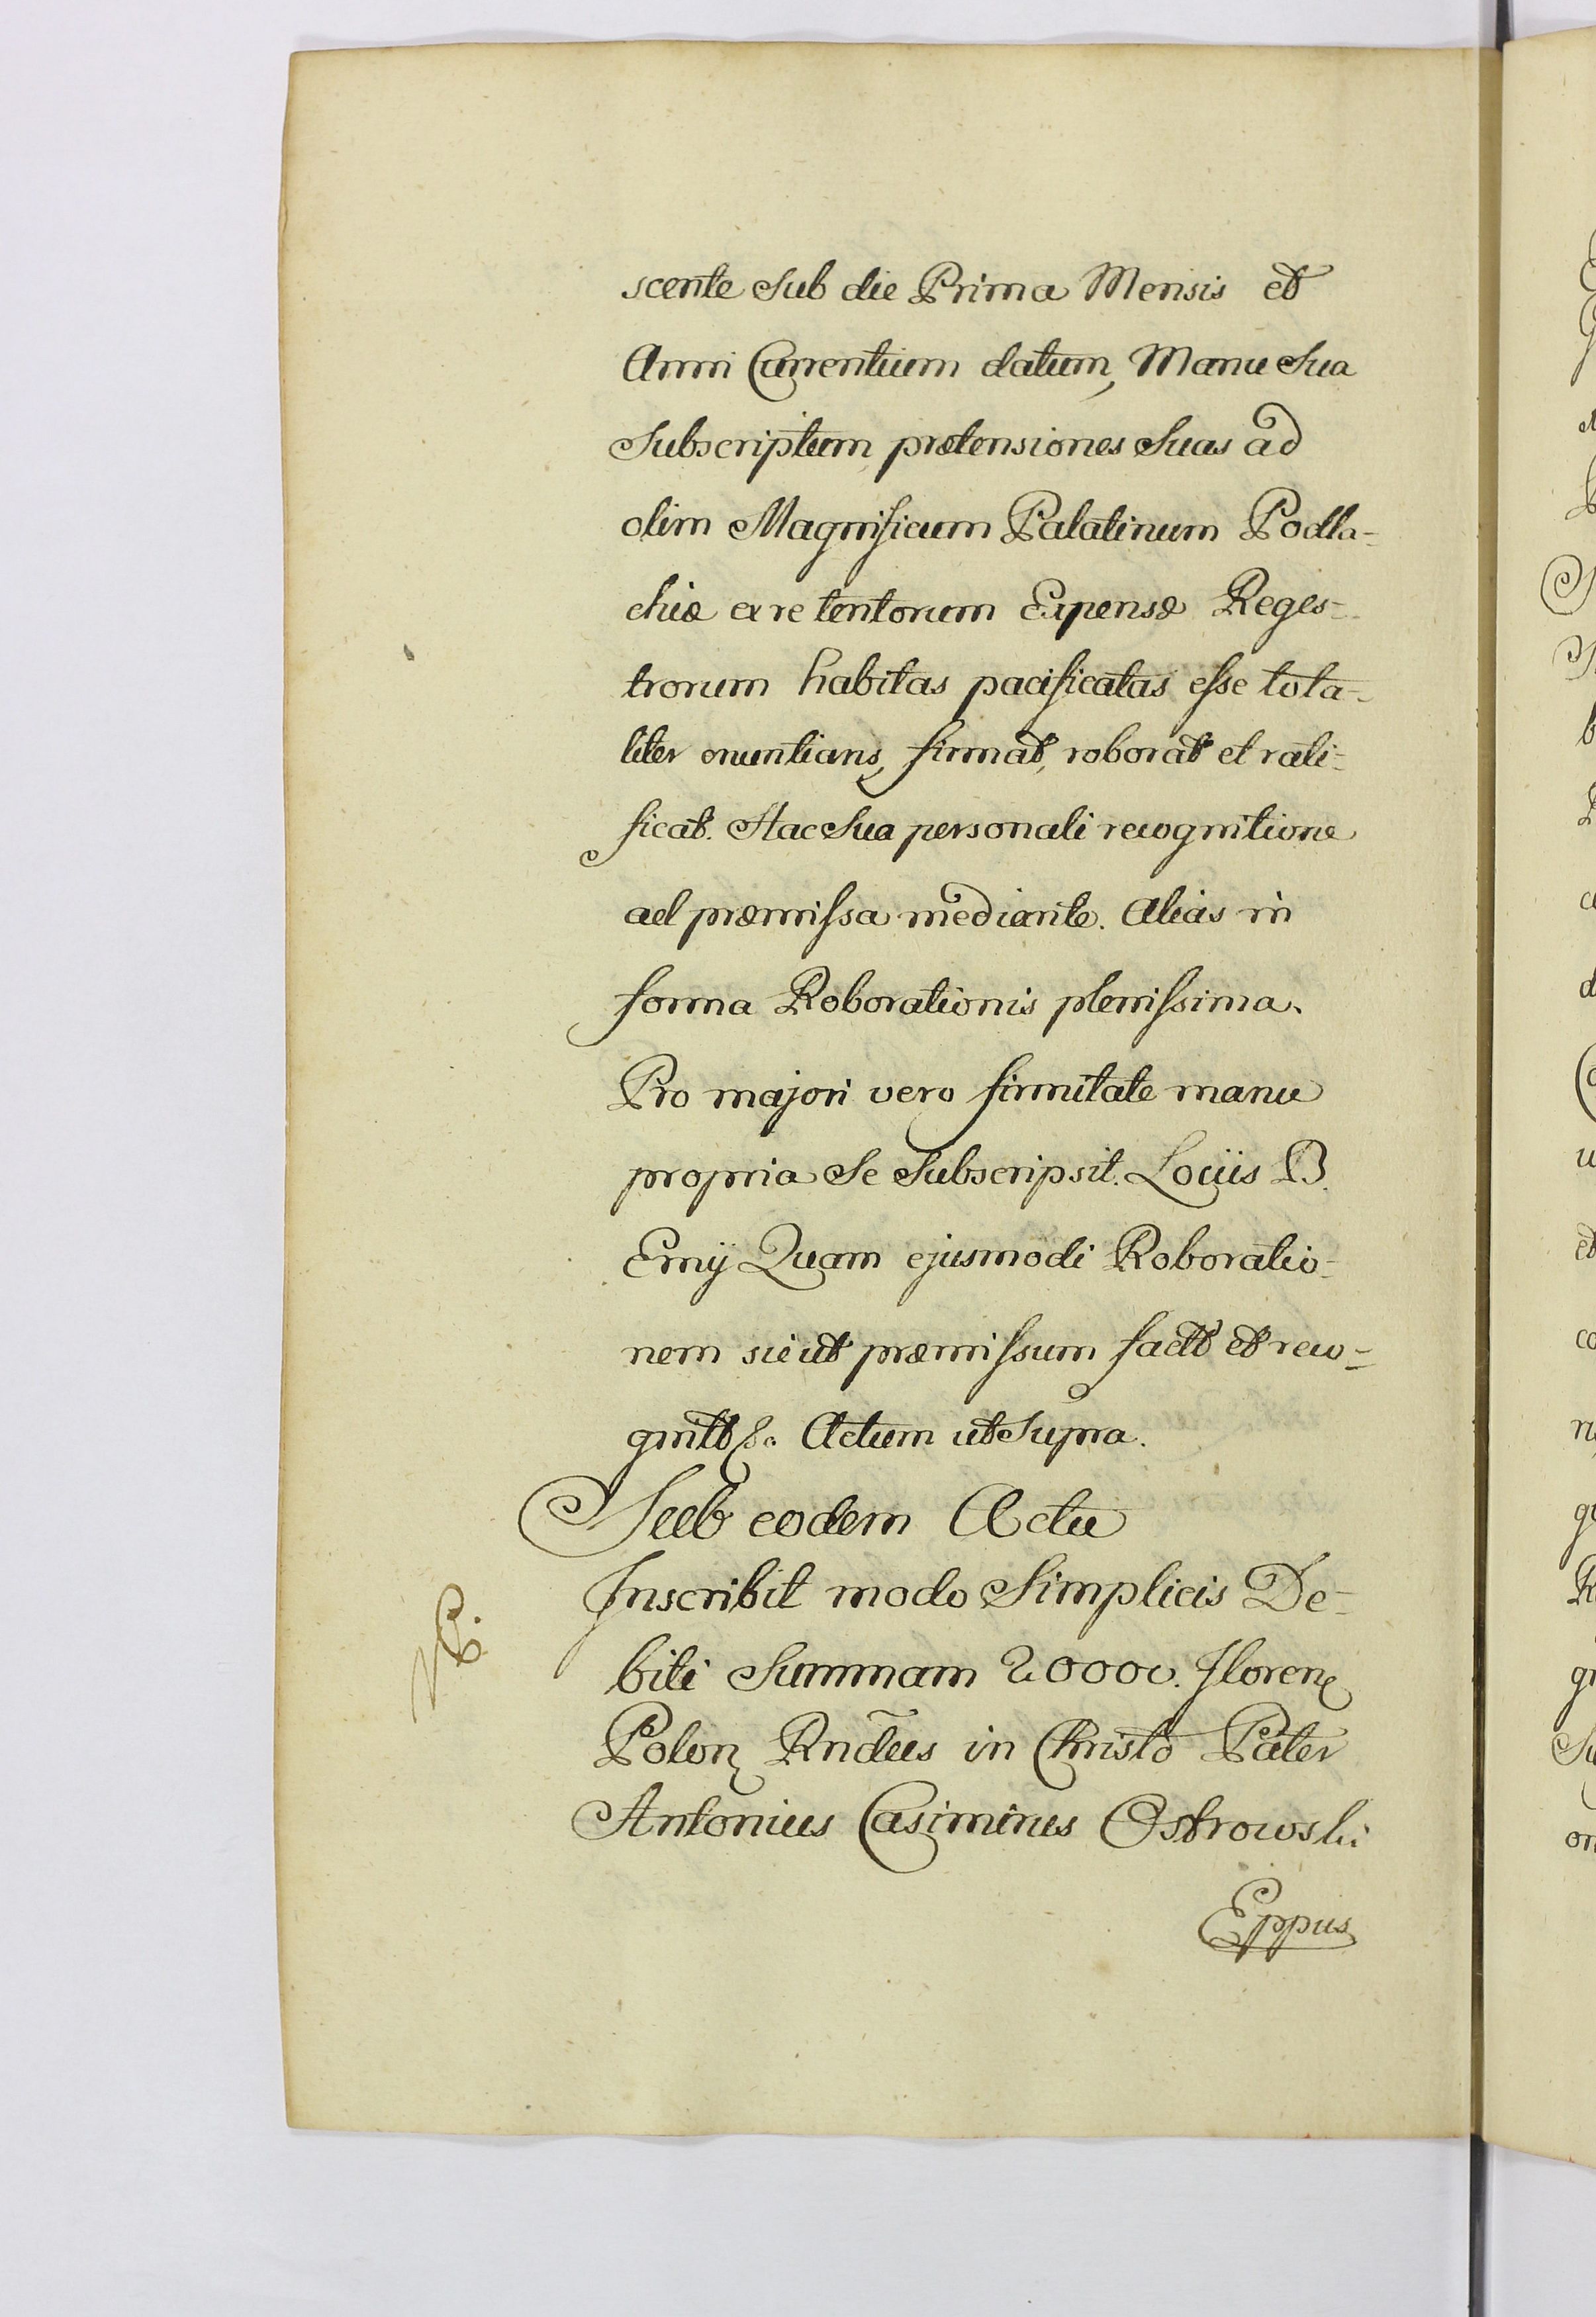 scente Sub die Prima Mensis et
Anni Currentium datum, Manu Sua
Subscriptum prætensiones Suas ad
olim Magnificum Palatinum Podla-
chiæ ex re tentorum Expensæ Reges-
trorum habitas pacificatas esse tota-
liter enuntians, firmat, roborat et rati-
ficat. Hac Sua personali recognitione
ad præmissa mediante. Alias in
forma Roborationis plenissima.
Pro majori vero firmitate manu
propria Se Subscripsit. B.
Quam ejusmodi Roboratio-
nem sicut præmissum factt et reco-
gnitt &c. Actum ut Supra.
Sub eodem Actu
NB.
Inscribit modo Simplicis De-
biti Summam 20000. floren
Polon Rndus in Christo Pater
Antonius Casimirus Ostrowski
Eppus